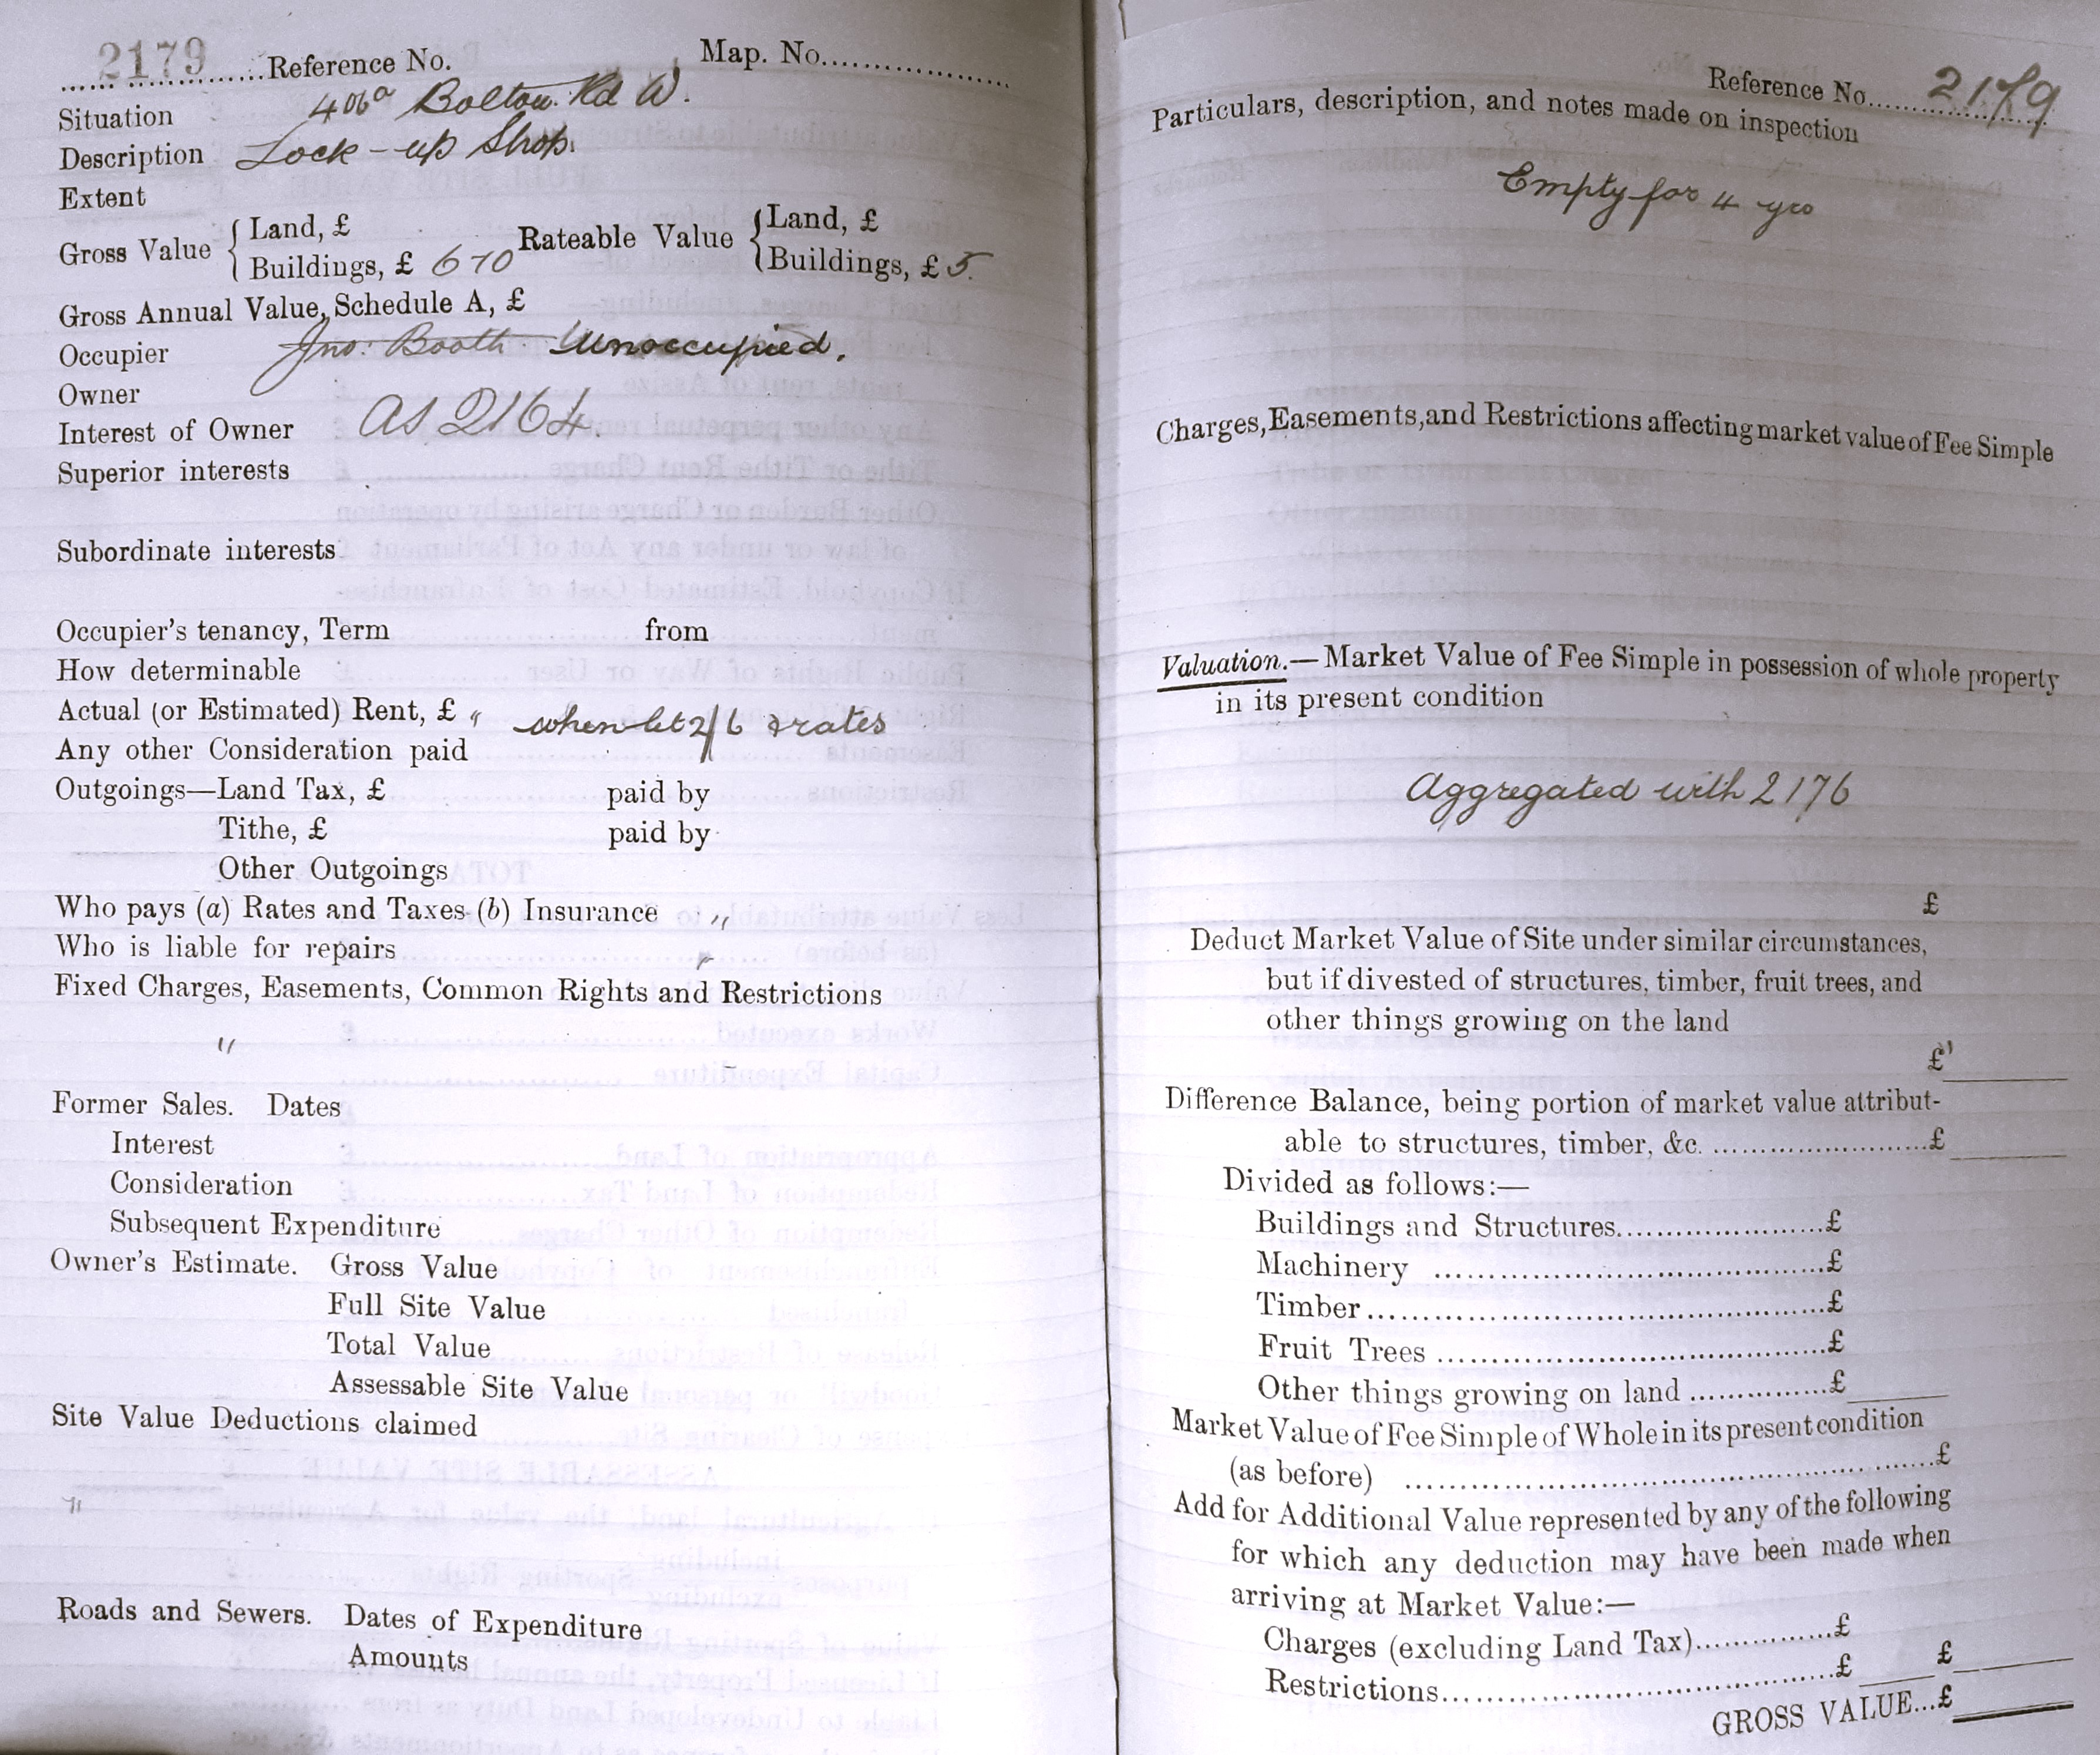 2179 Reference No. Map. No.
Situation 406a Bolton Rd W.
Description Lock-up Shop.
Extent
Gross Value { Land, £ Rateable Value { Land, £
Buildings, £ 6 10 Buildings, £ 5.
Gross Annual Value, Schedule A, £
Occupier Jno. Booth Unoccupied.
Owner
Interest of Owner as 2164.
Superior interests
Subordinate interests
Occupier's tenancy, Term from
How determinable
Actual (or Estimated) Rent, £ " when let 2/6 & rates
Any other Consideration paid
Outgoings—Land Tax, £ paid by
Tithe, £ paid by
Other Outgoings
Who pays (a) Rates and Taxes (b) Insurance "
Who is liable for repairs "
Fixed Charges, Easements, Common Rights and Restrictions
"
Former Sales. Dates
Interest
Consideration
Subsequent Expenditure
Owner's Estimate. Gross Value
Full Site Value
Total Value
Assessable Site Value
Site Value Deductions claimed
"
Roads and Sewers. Dates of Expenditure
Amounts
Reference No. 2179
Particulars, description, and notes made on inspection
Empty for 4 yrs
Charges, Easements, and Restrictions affecting market value of Fee Simple
Valuation.—Market Value of Fee Simple in possession of whole property
in its present condition
Aggregated with 2176
£
Deduct Market Value of Site under similar circumstances,
but if divested of structures, timber, fruit trees, and
other things growing on the land
£
Difference Balance, being portion of market value attribut-
able to structures, timber, &c. £
Divided as follows:—
Buildings and Structures £
Machinery £
Timber £
Fruit Trees £
Other things growing on land £
Market Value of Fee Simple of Whole in its present condition
(as before) £
Add for Additional Value represented by any of the following
for which any deduction may have been made when
arriving at Market Value:—
Charges (excluding Land Tax) £
Restrictions £ £
GROSS VALUE...£